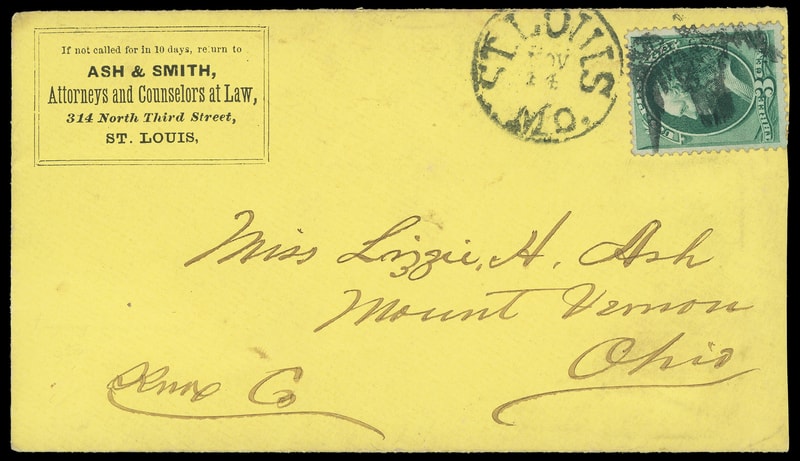 If not called for in 10 days, return to
ASH & SMITH,
Attorneys and Counselors at Law,
314 North Third Street,
ST. LOUIS,
ST. LOUIS
NOV
14
MO.
Miss Lizzie, H. Ash
Mount Vernon
Ohio
Knox Co